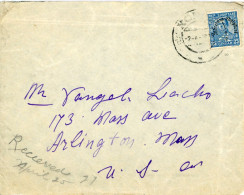 Mr Vangel Lacho
173 Mass ave
Arlington Mass
U. S. a
Received
April 25